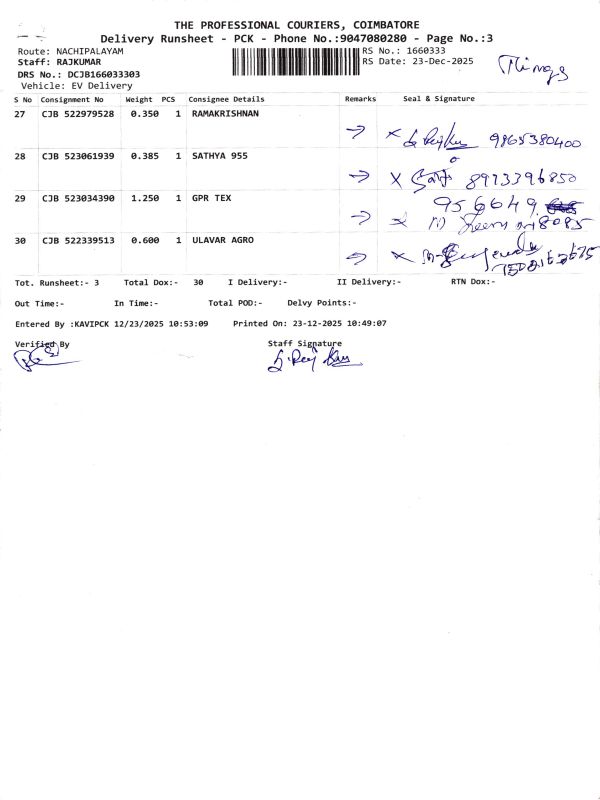 THE PROFESSIONAL COURIERS, COIMBATORE
Delivery Runsheet - PCK - Phone No.:9047080280 - Page No.:3
Route: NACHIPALAYAM
RS No.: 1660333
Staff: RAJKUMAR
RS Date: 23-Dec-2025
DRS No.: DCJB166033303
Vehicle: EV Delivery
S No Consignment No Weight PCS Consignee Details Remarks Seal & Signature
27 CJB 522979528 0.350 1 RAMAKRISHNAN
9865380400
28 CJB 523061939 0.385 1 SATHYA 955
8973396850
29 CJB 523034390 1.250 1 GPR TEX
956649
8085
30 CJB 522339513 0.600 1 ULAVAR AGRO
Tot. Runsheet:- 3 Total Dox:- 30 I Delivery:- II Delivery:- RTN Dox:-
Out Time:- In Time:- Total POD:- Delvy Points:-
Entered By :KAVIPCK 12/23/2025 10:53:09 Printed On: 23-12-2025 10:49:07
Verified By Staff Signature